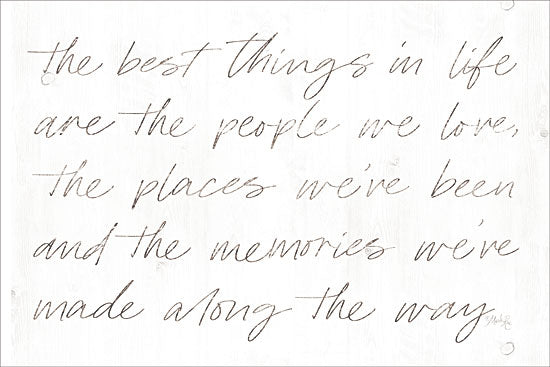 the best things in life
are the people we love,
the places we've been
and the memories we've
made along the way